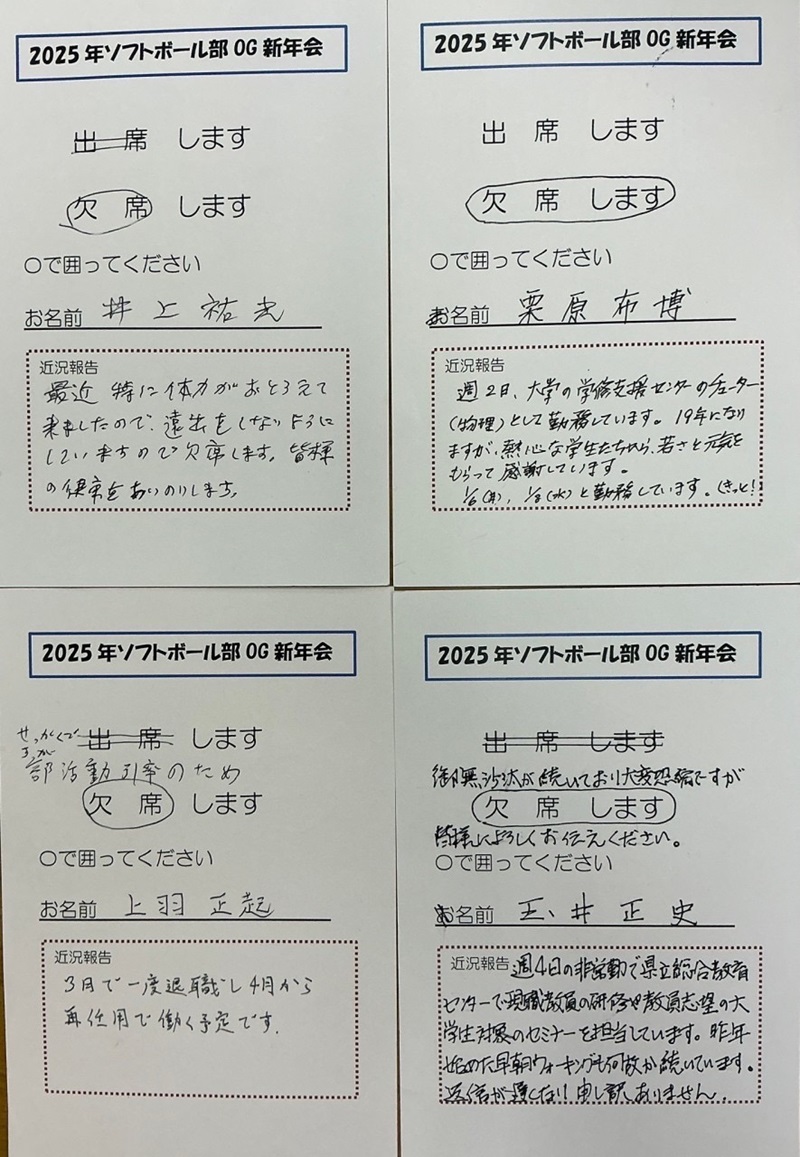 2025年ソフトボール部OG新年会
出席します
欠席します
○で囲ってください
お名前 井上祐光
近況報告
最近 特に体力がおとろえて
来ましたので、遠出をしないように
しています ので欠席します。皆様
の健康をおいのりします。
2025年ソフトボール部OG新年会
出席します
欠席します
○で囲ってください
お名前 栗原布博
近況報告
週2日、大学の学修支援センターのチューター
(物理)として勤務しています。19年になり
ますが、熱心な学生たちから、若さと元気を
もらって感謝しています。
1/6(月), 1/8(水)と勤務しています。(きっと!)
2025年ソフトボール部OG新年会
せっかくで
すが
出席します
部活動引率のため
欠席します
○で囲ってください
お名前 上羽正起
近況報告
3月で一度退職し4月から
再任用で働く予定です.
2025年ソフトボール部OG新年会
出席します
御無沙汰が続いており大変恐縮ですが
欠席します
皆様によろしくお伝えください。
○で囲ってください
お名前 玉井正史
近況報告 週4日の非常勤で県立総合教育
センターで現職教員の研修や教員志望の大
学生対象のセミナーを担当しています。昨年
始めた早朝ウォーキングも何故か続いています。
返信が遅くなり申し訳ありません..